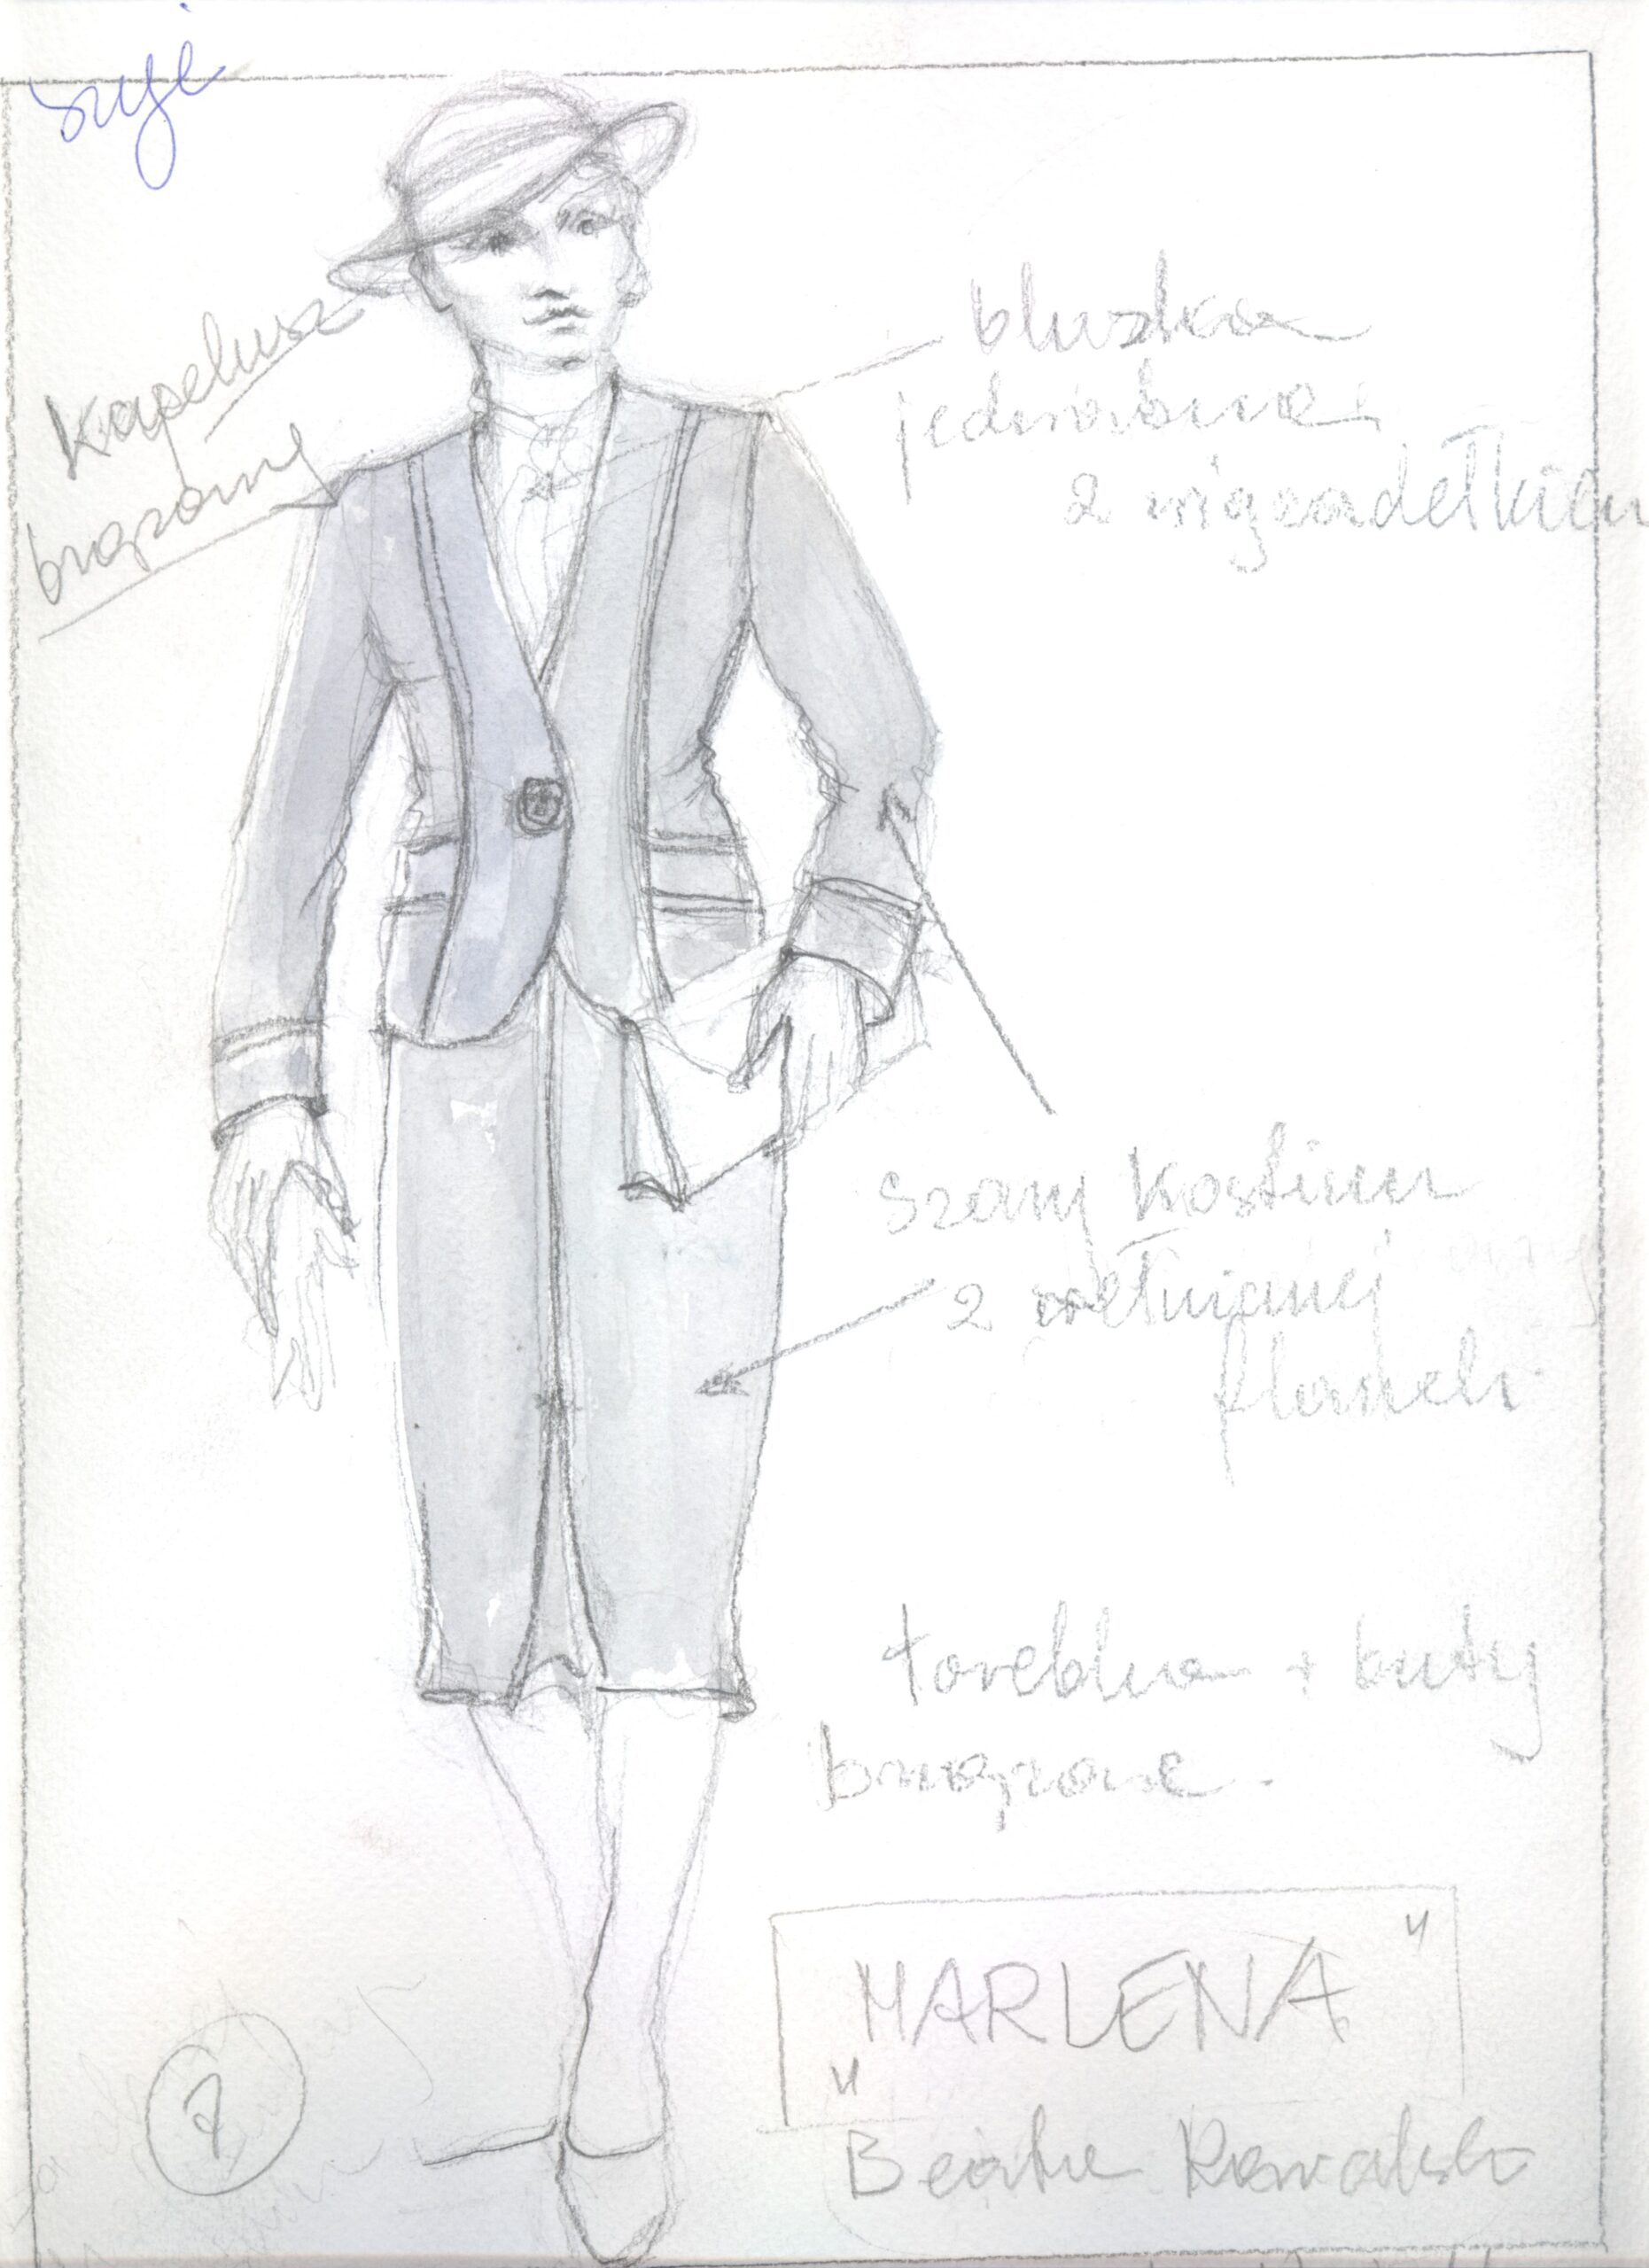 szyć
kapelusz
brązowy
bluzka
jedwabna
z wiązadełkiem
szary kostium
z wełnianej
flaneli
torebka + buty
brązowe.
"MARLENA"
Beata Kowalski
7